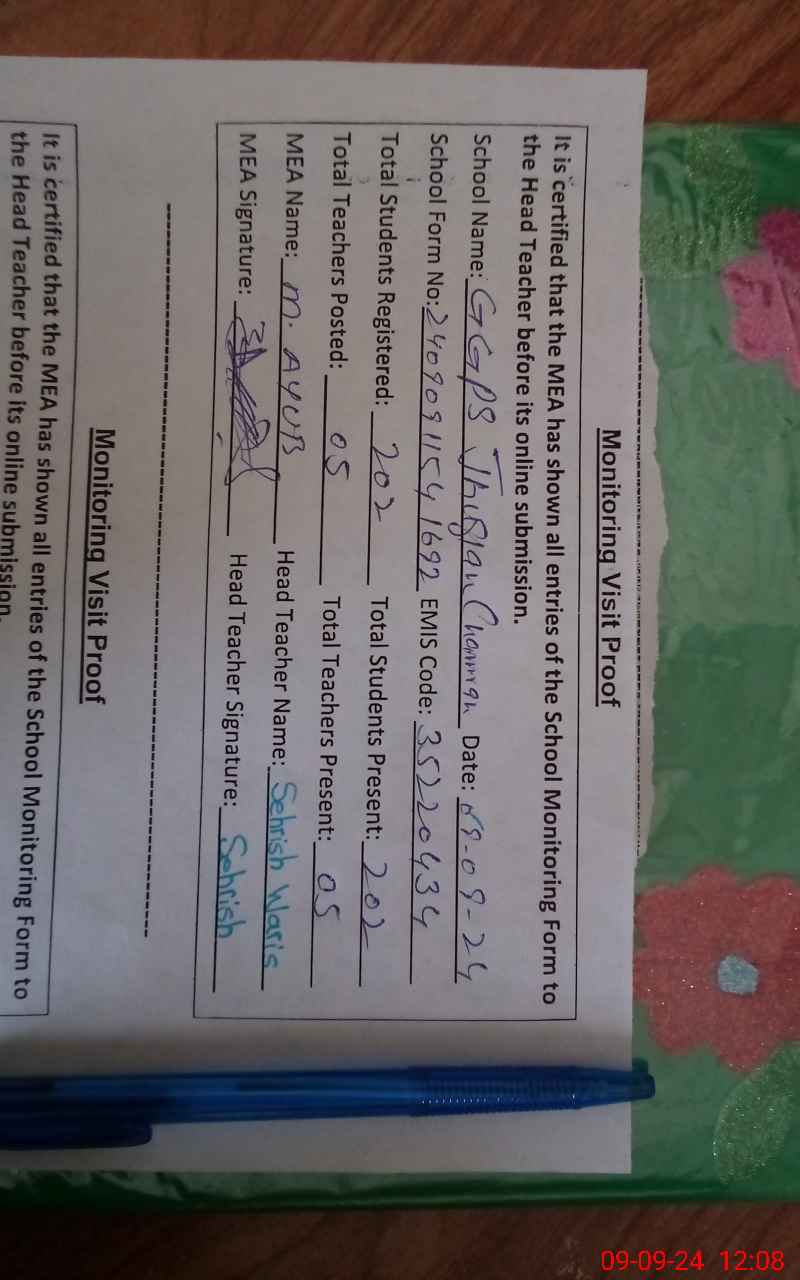 Monitoring Visit Proof
It is certified that the MEA has shown all entries of the School Monitoring Form to
the Head Teacher before its online submission.
School Name: GGPS Jhugian Channran Date: 09-09-24
School Form No: 2409091154 1692 EMIS Code: 35220434
Total Students Registered: 202 Total Students Present: 202
Total Teachers Posted: 05 Total Teachers Present: 05
MEA Name: M. AYUB Head Teacher Name: Sehrish Waris
MEA Signature: Head Teacher Signature: Sehrish
Monitoring Visit Proof
It is certified that the MEA has shown all entries of the School Monitoring Form to
the Head Teacher before its online submission.
09-09-24 12:08